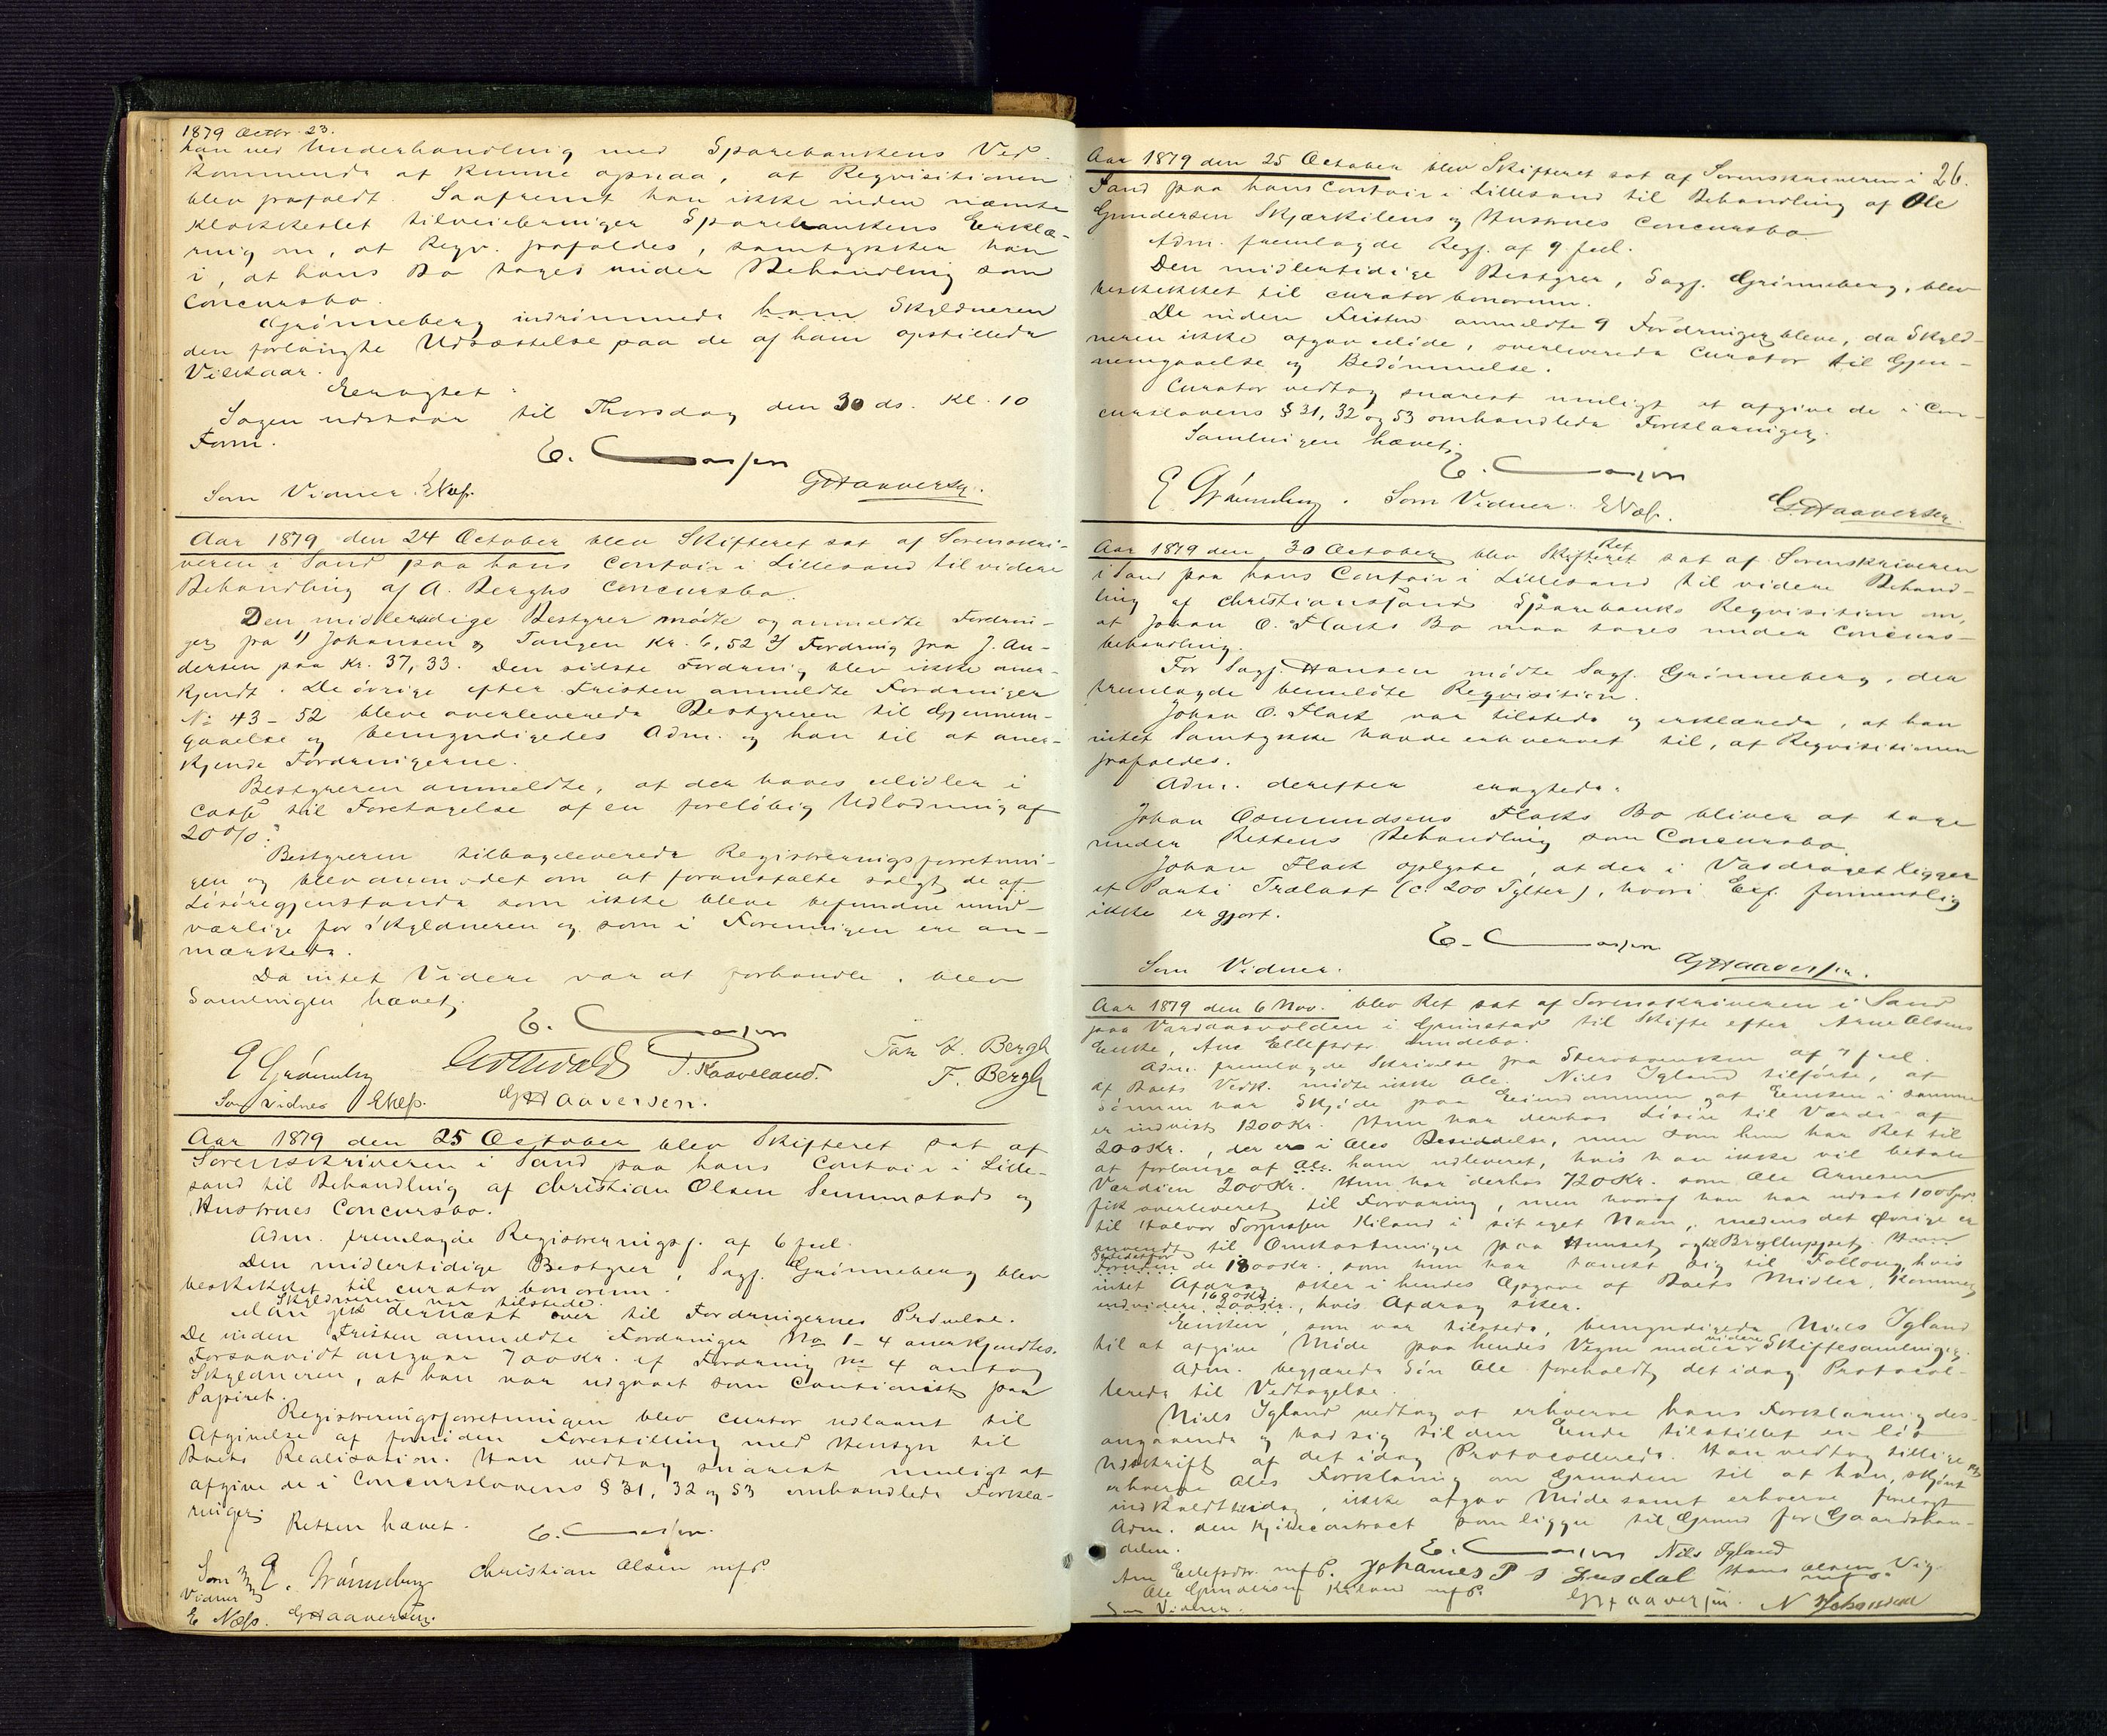 1879 Octbr. 23.
han ved Underhandling med Sparebankens Ved-
kommende at kunne opnaa, at Reqvisitionen
blev frafaldt. Saafremt han ikke inden nævnte
Klokkeslet tilveiebringer Sparebankens Erklæ-
ring om, at Reqv. frafaldes, samtykker han
i, at hans Bo tages under Behandling som
Concursbo.
Grønneberg indrømmede ham Skyldneren
den forlangte Udsættelse paa de af ham opstillede
Vilkaar.
Eragtet:
Sagen udstaar til Thorsdag den 30 ds. Kl. 10
Form.
E. Carsen
Som Vidner. E Næs. G Haaversen.
Aar 1879 den 24 October blev Skifteret sat af Sorenskri-
veren i Sand paa hans Contoir i Lillesand til videre
Behandling af A. Berghs Concursbo.
Den midlertidige Bestyrer mødte og anmeldte Fordrin-
ger fra 1) Johansen & Tangen Kr. 6,52 2) Fordring fra J. An-
dersen paa Kr. 37,33. Den sidste Fordring blev ikke aner-
kjendt. De øvrige efter Fristen anmeldte Fordringer
No 43-52 bleve overleverede Bestyreren til Gjennem-
gaaelse og bemyndigedes Adm. og han til at aner-
kjende Fordringerne.
Bestyreren anmeldte, at der haves Midler i
Cassa til Foretagelse af en foreløbig Udlodning af
20%.
Bestyreren tilbageleverede Registreringsforretnin-
gen og blev anmodet om at foranstalte solgt de af
Løsøregjenstande som ikke bleve befundne und-
værlige for Skyldneren og som i Forretningen ere an-
mærkede.
Da intet Videre var at forhandle, blev
Samlingen hævet.
E. Carsen
E Grønneberg Gottwaldt T. Kaaveland. Tar H. Bergh
F. Bergh
Som Vidner E Næs. G Haaversen.
Aar 1879 den 25 October blev Skifteret sat af
Sorenskriveren i Sand paa hans Contoir i Lille-
sand til Behandling af Christian Olsen Semmestads og
Hustrues Concursbo.
Adm. fremlagde Registreringsf. af 6 ds.
Den midlertidige Bestyrer, Sagf. Grønneberg blev
beskikket til curator bonorum.
Skyldneren var tilstede.
Man gik dernæst over til Fordringernes Prøvelse.
De inden Fristen anmeldte Fordringer No 1-4 anerkjendtes.
Forsaavidt angaar 700 Kr. af Fordring No 4 antog
Skyldneren, at han var udgaaet som Cautionist paa
Papiret.
Registreringsforretningen blev curator udlaant til
Afgivelse af fornøden Forestilling med Hensyn til
Boets Realisation. Han vedtog snarest muligt at
afgive de i Concurslovens § 31, 32 og 53 omhandlede Forkla-
ringer.
Retten hævet. E. Carsen.
Som Vidner E. Grønneberg Christian Olsen m.f.P.
E Næs. G Haaversen.
26.
Aar 1879 den 25 October blev Skifteret sat af Sorenskriveren i
Sand paa hans Contoir i Lillesand til Behandling af Ole
Gundersen Skjærkilens og Hustrues Concursbo.
Adm. fremlagde Regf. af 9 ds.
Den midlertidige Bestyrer, Sagf. Grønneberg, blev
beskikket til curator bonorum.
De inden Fristen anmeldte 9 Fordringer bleve, da Skyld-
neren ikke afgav Møde, overleverede Curator til Gjen-
nemgaaelse og Bedømmelse.
Curator vedtog snarest muligt at afgive de i Con-
curslovens § 31, 32 og 53 omhandlede Forklaringer.
Samlingen hævet.
E. Carsen
E Grønneberg. Som Vidner: E Næs. G Haaversen.
Aar 1879 den 30 October blev Skifteret Ret sat af Sorenskriveren
i Sand paa hans Contoir i Lillesand til videre Behand-
ling af Christianssands Sparebanks Reqvisition om,
at Johan O. Flaks Bo maa tages under Concurs-
behandling.
For Sagf. Hansen mødte Sagf. Grønneberg, der
fremlagde bemeldte Reqvisition.
Johan O. Flak var tilstede og erklærede, at han
intet Samtykke havde erhvervet til, at Reqvisitionen
frafaldes.
Adm. derefter eragtede:
Johan Osmundsens Flaks Bo bliver at tage
under Rettens Behandling som Concursbo.
Johan Flak oplyste, at der i Vasdraget ligger
et Parti Trælast (c. 200 Tylter), hvori Exf. formentlig
ikke er gjort.
E. Carsen
Som Vidner. G Haaversen.
Aar 1879 den 6 Nov. blev Ret sat af Sorenskriveren i Sand
paa Vardaasvolden i Grimstad til Skifte efter Arne Olsens
Enke, Ane Ellefsdtr.
Adm. fremlagde Skrivelse fra af 4 ds.
Af Boets Vedk. mødte ikke Ole. Niels Igland tilførte, at
Sønnen har Skjøde paa Eiendommen, at Enken i samme
er indvist 1200 Kr. Hun har derhos Løsøre til Værdi af
200 Kr., der er i Oles Besiddelse, men som hun har Ret til
at forlange af Ole ham udleveret, hvis han ikke vil betale
Værdien 200 Kr. Hun har derhos 720 Kr. som Ole Arnesen
fik overleveret til Forvaring, men hvoraf han har udsat 100 Spd.
til Halvor Torjussen Kiland i sit eget Navn, medens det Øvrige er
anvendt til Omkostninger paa Huuset og til Bryllupet.
de 1800 Kr. som hun har tænkt sig til Follog, hvis
intet Afdrag sker i hendes Opgave af Boets Midler. Kommer
endvidere 1600 Kr. 200 Kr., hvis Afdrag sker.
Enken, som var tilstede, bemyndigede Niels Igland
til at afgive Møde paa hendes Vegne under videre Skiftesamlinger.
Adm. begjærede Søn Ole foreholdt det idag Protocol-
lerede til Vedtagelse.
Niels Igland vedtog at erhverve hans Forklaring des-
angaaende og bad sig til den Ende tilstillet en løs
Udskrift af det idag Protocollerede. Han vedtog tillige at
erhverve Oles Forklaring om Grunden til at han, skjønt
indkaldt til idag, ikke afgav Møde samt erhverve forelagt
Adm. den Kjøbecontract som ligger til Grund for Gaardshan-
delen.
E. Carsen Nils Igland
Ane Ellefsdtr. m.f.P. Johannes P S Lusdal Hans Olsen Vig
Ole Gundersen Kiland m.f.P. m.f.P.
Som Vidner. G Haaversen. N Johansen